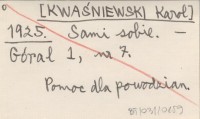 [KWAŚNIEWSKI Karol]
1925. Sami sobie. —
Góral 1, nr 7.
Pomoc dla powodzian.